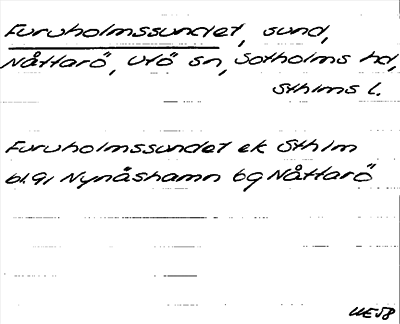 Furuholmssundet, sund,
Nåttarö, Utö sn, Sotholms hd,
Sthlms l.
Furuholmssundet ek Sthlm
bl.91 Nynäshamn 69 Nåttarö
UE58